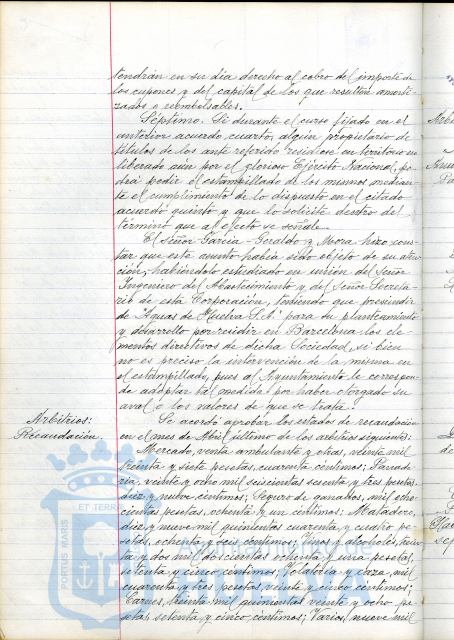 tendrán en su día derecho al cobro del importe de
los cupones y del capital de los que resulten amorti-
zados y reembolsables.
Séptimo. Si durante el curso fijado en el
anterior acuerdo cuarto, algún propietario de
títulos de los ante referido residiese en territorio no
liberado aún por el glorioso Ejército Nacional, po-
drá pedir el estampillado de los mismos median-
te el cumplimiento de lo dispuesto en el citado
acuerdo quinto y que lo solicite dentro del
término que al efecto se señale.
El Señor García-Geraldo y Mora hizo cons-
tar que este asunto había sido objeto de su aten-
ción, habiéndolo estudiado en unión del Señor
Ingeniero del Abastecimiento y del Señor Secreta-
rio de esta Corporación, teniendo que prescindir
de "Aguas de Huelva S.A." para su planteamiento
y desarrollo por residir en Barcelona los ele-
mentos directivos de dicha Sociedad, si bien
no es preciso la intervención de la misma en
el estampillado, pues al Ayuntamiento le correspon-
de adoptar tal medida por haber otorgado su
aval a los valores de que se trata.
Arbitrios:
Recaudación.
Se acordó aprobar los estados de recaudación
en el mes de Abril último de los arbitrios siguientes:
Mercado, venta ambulante y otras, veinte mil
treinta y siete pesetas, cuarenta céntimos; Panade-
ría, veinte y ocho mil seiscientas sesenta y tres pesetas,
diez y nueve céntimos; Seguro de ganados, mil ocho-
cientas pesetas, ochenta y un céntimos; Matadero,
diez y nueve mil quinientas cuarenta y cuatro pe-
setas, ochenta y seis céntimos; Vinos y alcoholes,
y dos mil doscientas ochenta y una pesetas,
setenta y cinco céntimos; Volatería y caza, mil
cuarenta y tres pesetas, veinte y cinco céntimos;
Carnes, treinta mil quinientas veinte y ocho pe-
setas, setenta y cinco céntimos; Varios, nueve mil
PORTUS MARIS
ET TERR